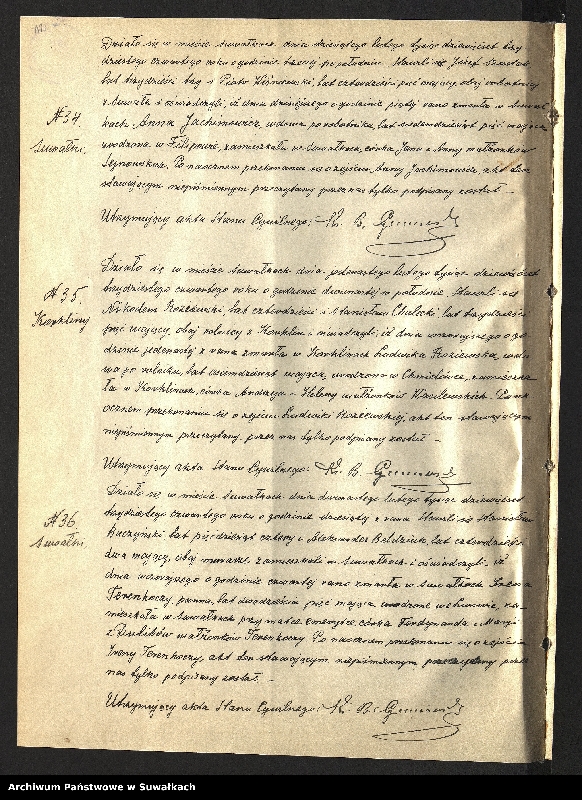 Działo się w mieście Suwałkach dnia dziesiątego lutego tysiąc dziewięćset trzy
dziestego czwartego roku o godzinie trzeciej po południu. Stawili się Józef
lat trzydzieści trzy i Piotr Wiśniewski, lat czterdzieści pięć mający, obaj robotnicy
z Suwałk i oświadczyli, iż dnia dzisiejszego o godzinie piątej rano zmarła w Suwał-
№ 34.
Suwałki.
kach Anna Jachimowicz, wdowa po robotniku, lat siedemdziesiąt pięć mająca
urodzona w Filipowie, zamieszkała w Suwałkach, córka Jana i Anny małżonków
Sejnowskich. Po naocznem przekonaniu się o zejściu Anny Jachimowicz, akt ten
stawającym niepiśmiennym przeczytany przez nas tylko podpisany został. –
Utrzymujący akta Stanu Cywilnego: Ks. B.
Działo się w mieście Suwałkach dnia jedenastego lutego tysiąc dziewięćset
trzydziestego czwartego roku o godzinie dwunastej w południe. Stawili się
№ 35.
Krzywólka
Nikodem lat czterdzieści i Stanisław Chalecki lat trzydzieści
pięć mający, obaj rolnicy z i oświadczyli, iż dnia wczorajszego o go-
dzinie jedenastej z rana zmarła w Ludwika wdo-
wa po rolniku, lat osiemdziesiąt mająca, urodzona w Chmielówce, zamieszka-
ła w córka Andrzeja i Heleny małżonków Wasilewskich. Po na-
ocznem przekonaniu się o zejściu Ludwiki akt ten stawającym
niepiśmiennym przeczytany, przez nas tylko podpisany został. –
Utrzymujący akta Stanu Cywilnego: Ks. B.
Działo się w mieście Suwałkach dnia dwunastego lutego tysiąc dziewięćset
trzydziestego czwartego roku o godzinie dziesiątej z rana. Stawili się Stanisław
№ 36.
Suwałki.
Buczyński, lat pięćdziesiąt cztery i Aleksander lat czterdzieści
dwa mający, obaj murarze, zamieszkali w Suwałkach i oświadczyli, iż
dnia wczorajszego o godzinie czwartej rano zmarła w Suwałkach Irena
Terenkoczy panna, lat dwadzieścia pięć mająca urodzona za-
mieszkała w Suwałkach przy matce emerytce, córka Ferdynanda i Marji
z małżonków Terenkoczy. Po naocznem przekonaniu się o zejściu
Ireny Terenkoczy, akt ten stawającym niepiśmiennym przeczytany przez
nas tylko podpisany został. –
Utrzymujący akta Stanu Cywilnego: Ks. B.
Archiwum Państwowe w Suwałkach